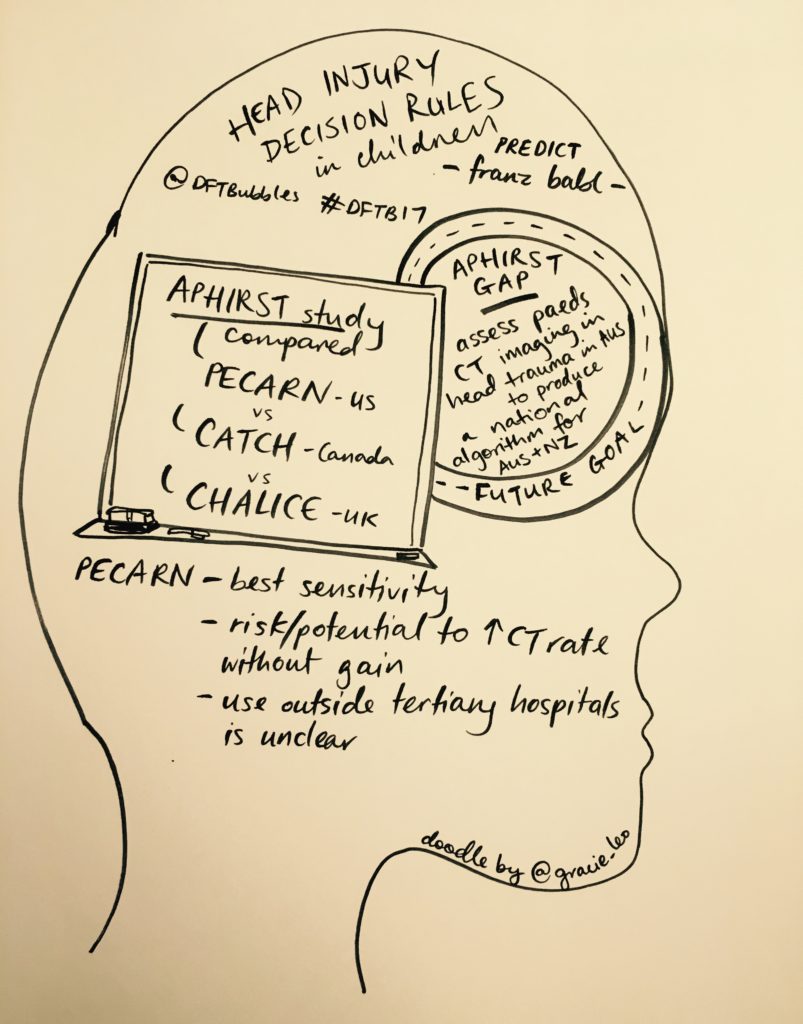 HEAD INJURY
DECISION RULES
in children
PREDICT
- franz babl -
@DFTBubbles #DFTB17
APHIRST study
( compared )
PECARN - US
vs
( CATCH - Canada
vs
( CHALICE - UK
APHIRST
GAP
assess paeds
CT imaging in
head trauma in Aus
to produce
a national
algorithm for
Aus + NZ
-- FUTURE GOAL
PECARN - best sensitivity
- risk/potential to ↑ CT rate
without gain
- use outside tertiary hospitals
is unclear
doodle by @gracie_leo